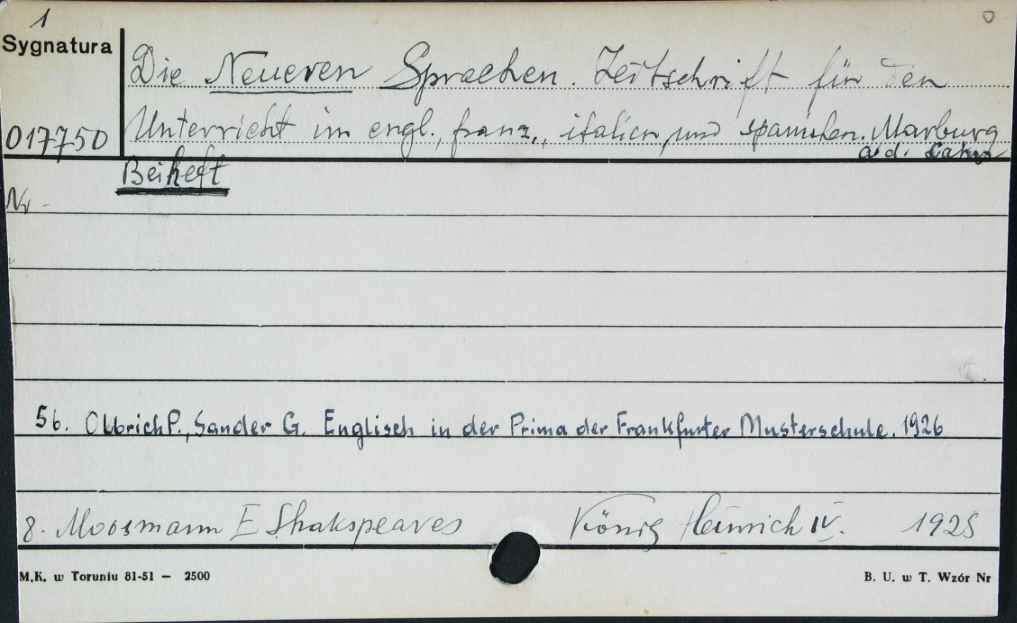 1
Sygnatura
Die Neueren Sprachen. Zeitschrift für den
017750
Unterricht im engl., franz., italien. und spanischen. Marburg
a.d. Lahn
Beiheft
Nr
56. Olbrich P., Sander G. Englisch in der Prima der Frankfurter Musterschule. 1926
8. Moosmann E Shakspeares König Heinrich IV. 1925
M.K. w Toruniu 81-51 — 2500
B. U. w T. Wzór Nr